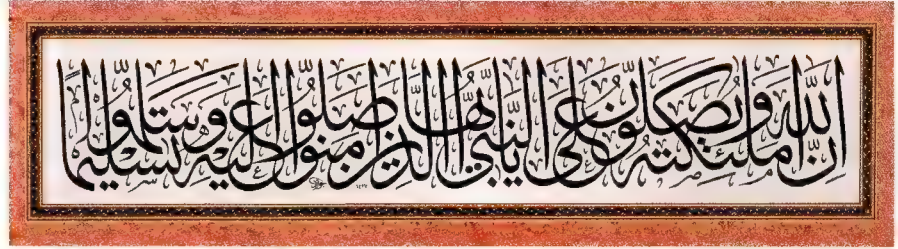 إِنَّ اللَّهَ وَمَلَٰئِكَتَهُ يُصَلُّونَ عَلَى النَّبِيِّ يَا أَيُّهَا الَّذِينَ آمَنُوا صَلُّوا عَلَيْهِ وَسَلِّمُوا تَسْلِيمًا